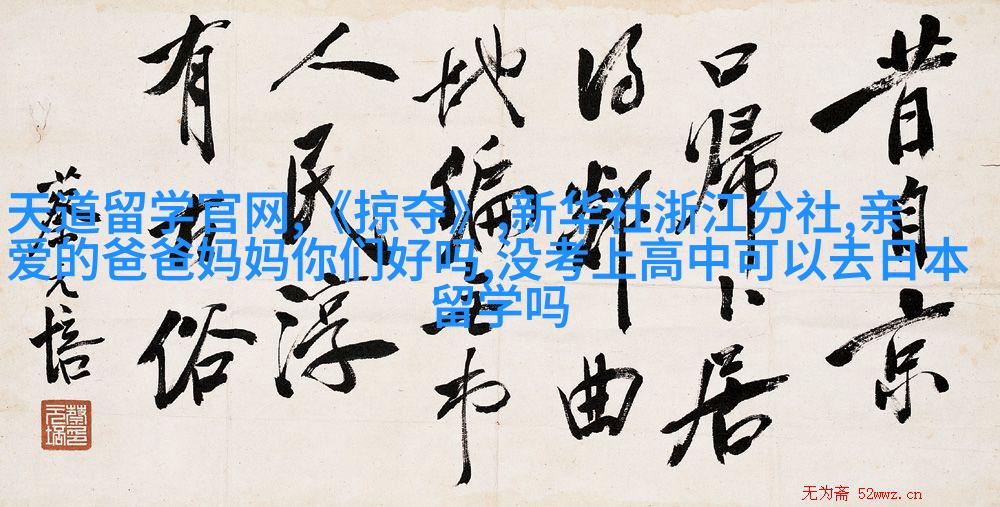 昔自京
口歸卜居
得鄰曲
地偏市
人民淳
有俗
蔡元培
天道留学官网,《掠夺》,新华社浙江分社,亲
爱的爸爸妈妈你们好吗,没考上高中可以去日本
留学吗
无为斋 52wwz.cn